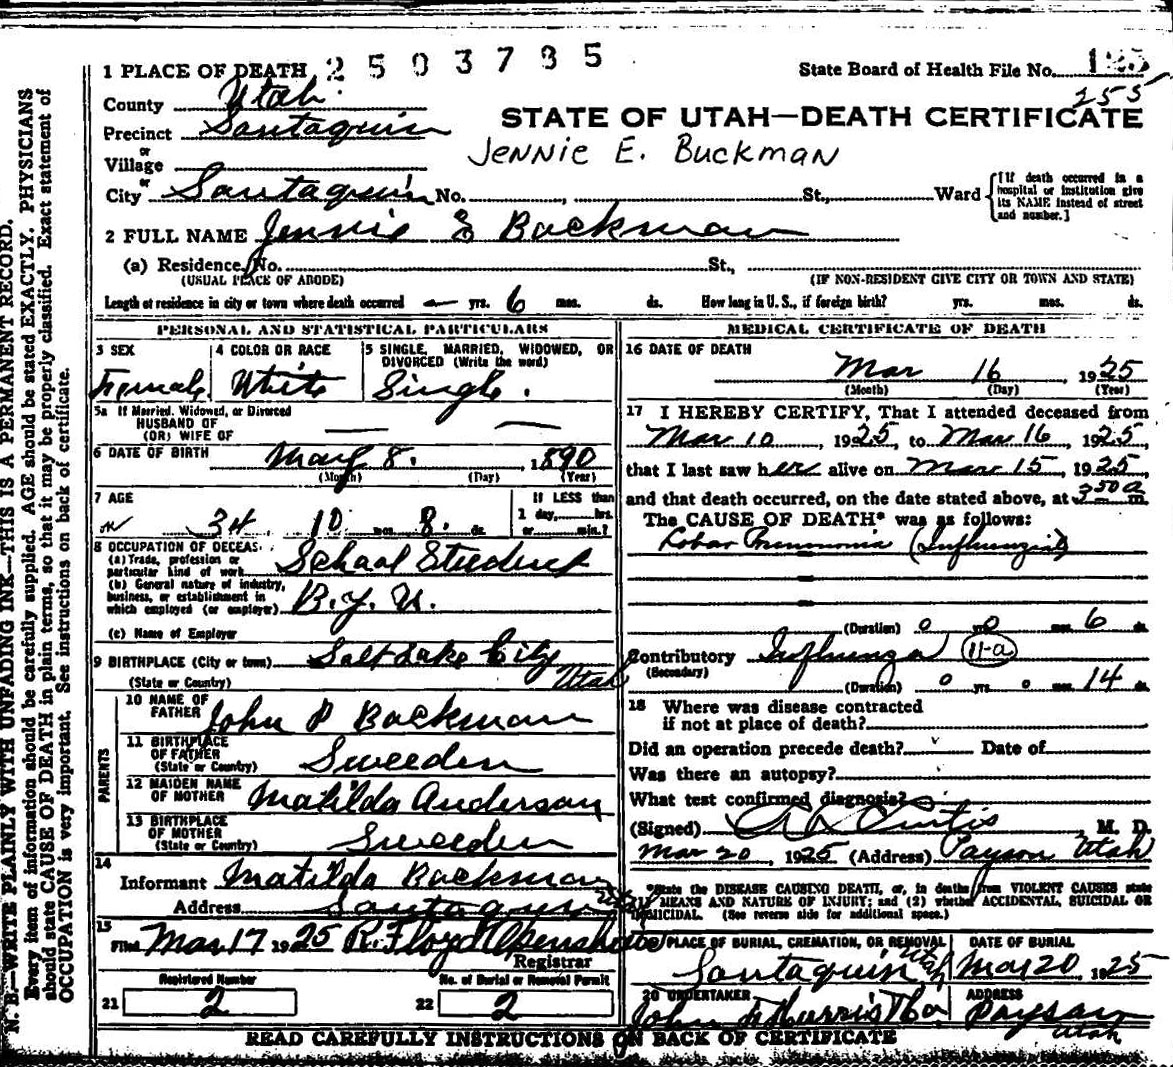 2503785
1 PLACE OF DEATH
State Board of Health File No. 123
255
County Utah
STATE OF UTAH—DEATH CERTIFICATE
Precinct Santaquin
JENNIE E. BUCKMAN
or
Village
or
City Santaquin No. , St., Ward [If death occurred in a hospital or institution give its NAME instead of street and number.]
2 FULL NAME Jennie E Backman
(a) Residence, No. St.,
(USUAL PLACE OF ABODE) (IF NON-RESIDENT GIVE CITY OR TOWN AND STATE)
Length of residence in city or town where death occurred — yrs. 6 mos. ds. How long in U. S., if foreign birth? yrs. mos. ds.
PERSONAL AND STATISTICAL PARTICULARS
3 SEX
Female
4 COLOR OR RACE
White
5 SINGLE, MARRIED, WIDOWED, OR
DIVORCED (Write the word)
Single.
5a If Married, Widowed, or Divorced
HUSBAND OF
(OR) WIFE OF
6 DATE OF BIRTH May 8. 1890
(Month) (Day) (Year)
7 AGE
34 10 mos. 8. ds.
If LESS than
1 day, hrs.
or min.?
8 OCCUPATION OF DECEAS.
(a) Trade, profession or
particular kind of work School Student
(b) General nature of industry,
business, or establishment in
which employed (or employer) B.Y.U.
(c) Name of Employer
9 BIRTHPLACE (City or town) Salt Lake City
(State or Country) Utah
PARENTS
10 NAME OF
FATHER John P Backman
11 BIRTHPLACE
OF FATHER
(State or Country) Sweeden
12 MAIDEN NAME
OF MOTHER Matilda Anderson
13 BIRTHPLACE
OF MOTHER
(State or Country) Sweeden
14
Informant Matilda Backman
Address Santaquin Utah
15
Filed Mar 17 1925 R. Floyd
Registrar
Registered Number
21 2
No. of Burial or Removal Permit
22 2
MEDICAL CERTIFICATE OF DEATH
16 DATE OF DEATH
Mar 16 1925
(Month) (Day) (Year)
17 I HEREBY CERTIFY, That I attended deceased from
Mar 10, 1925, to Mar 16, 1925,
that I last saw her alive on Mar 15, 1925,
and that death occurred, on the date stated above, at 3 50 a m
The CAUSE OF DEATH* was as follows:
Lobar Pneumonia (Influenzial)
(Duration) 0 yrs 0 mos. 6 ds.
Contributory Influenza 11-a
(Secondary)
(Duration) 0 yrs. 0 mos. 14 ds.
18 Where was disease contracted
if not at place of death?
Did an operation precede death? Date of
Was there an autopsy?
What test confirmed diagnosis?
(Signed) Curtis M. D.
Mar 20, 1925 (Address) Payson Utah
*State the DISEASE CAUSING DEATH, or, in deaths from VIOLENT CAUSES state
(1) MEANS AND NATURE OF INJURY; and (2) whether ACCIDENTAL, SUICIDAL OR
HOMICIDAL. (See reverse side for additional space.)
PLACE OF BURIAL, CREMATION, OR REMOVAL
Santaquin Utah
DATE OF BURIAL
Mar 20, 1925
20 UNDERTAKER
John
ADDRESS
Payson
Utah
READ CAREFULLY INSTRUCTIONS ON BACK OF CERTIFICATE
N. B.—WRITE PLAINLY WITH UNFADING INK—THIS IS A PERMANENT RECORD.
Every item of information should be carefully supplied. AGE should be stated EXACTLY. PHYSICIANS
should state CAUSE OF DEATH in plain terms, so that it may be properly classified. Exact statement of
OCCUPATION is very important. See instructions on back of certificate.